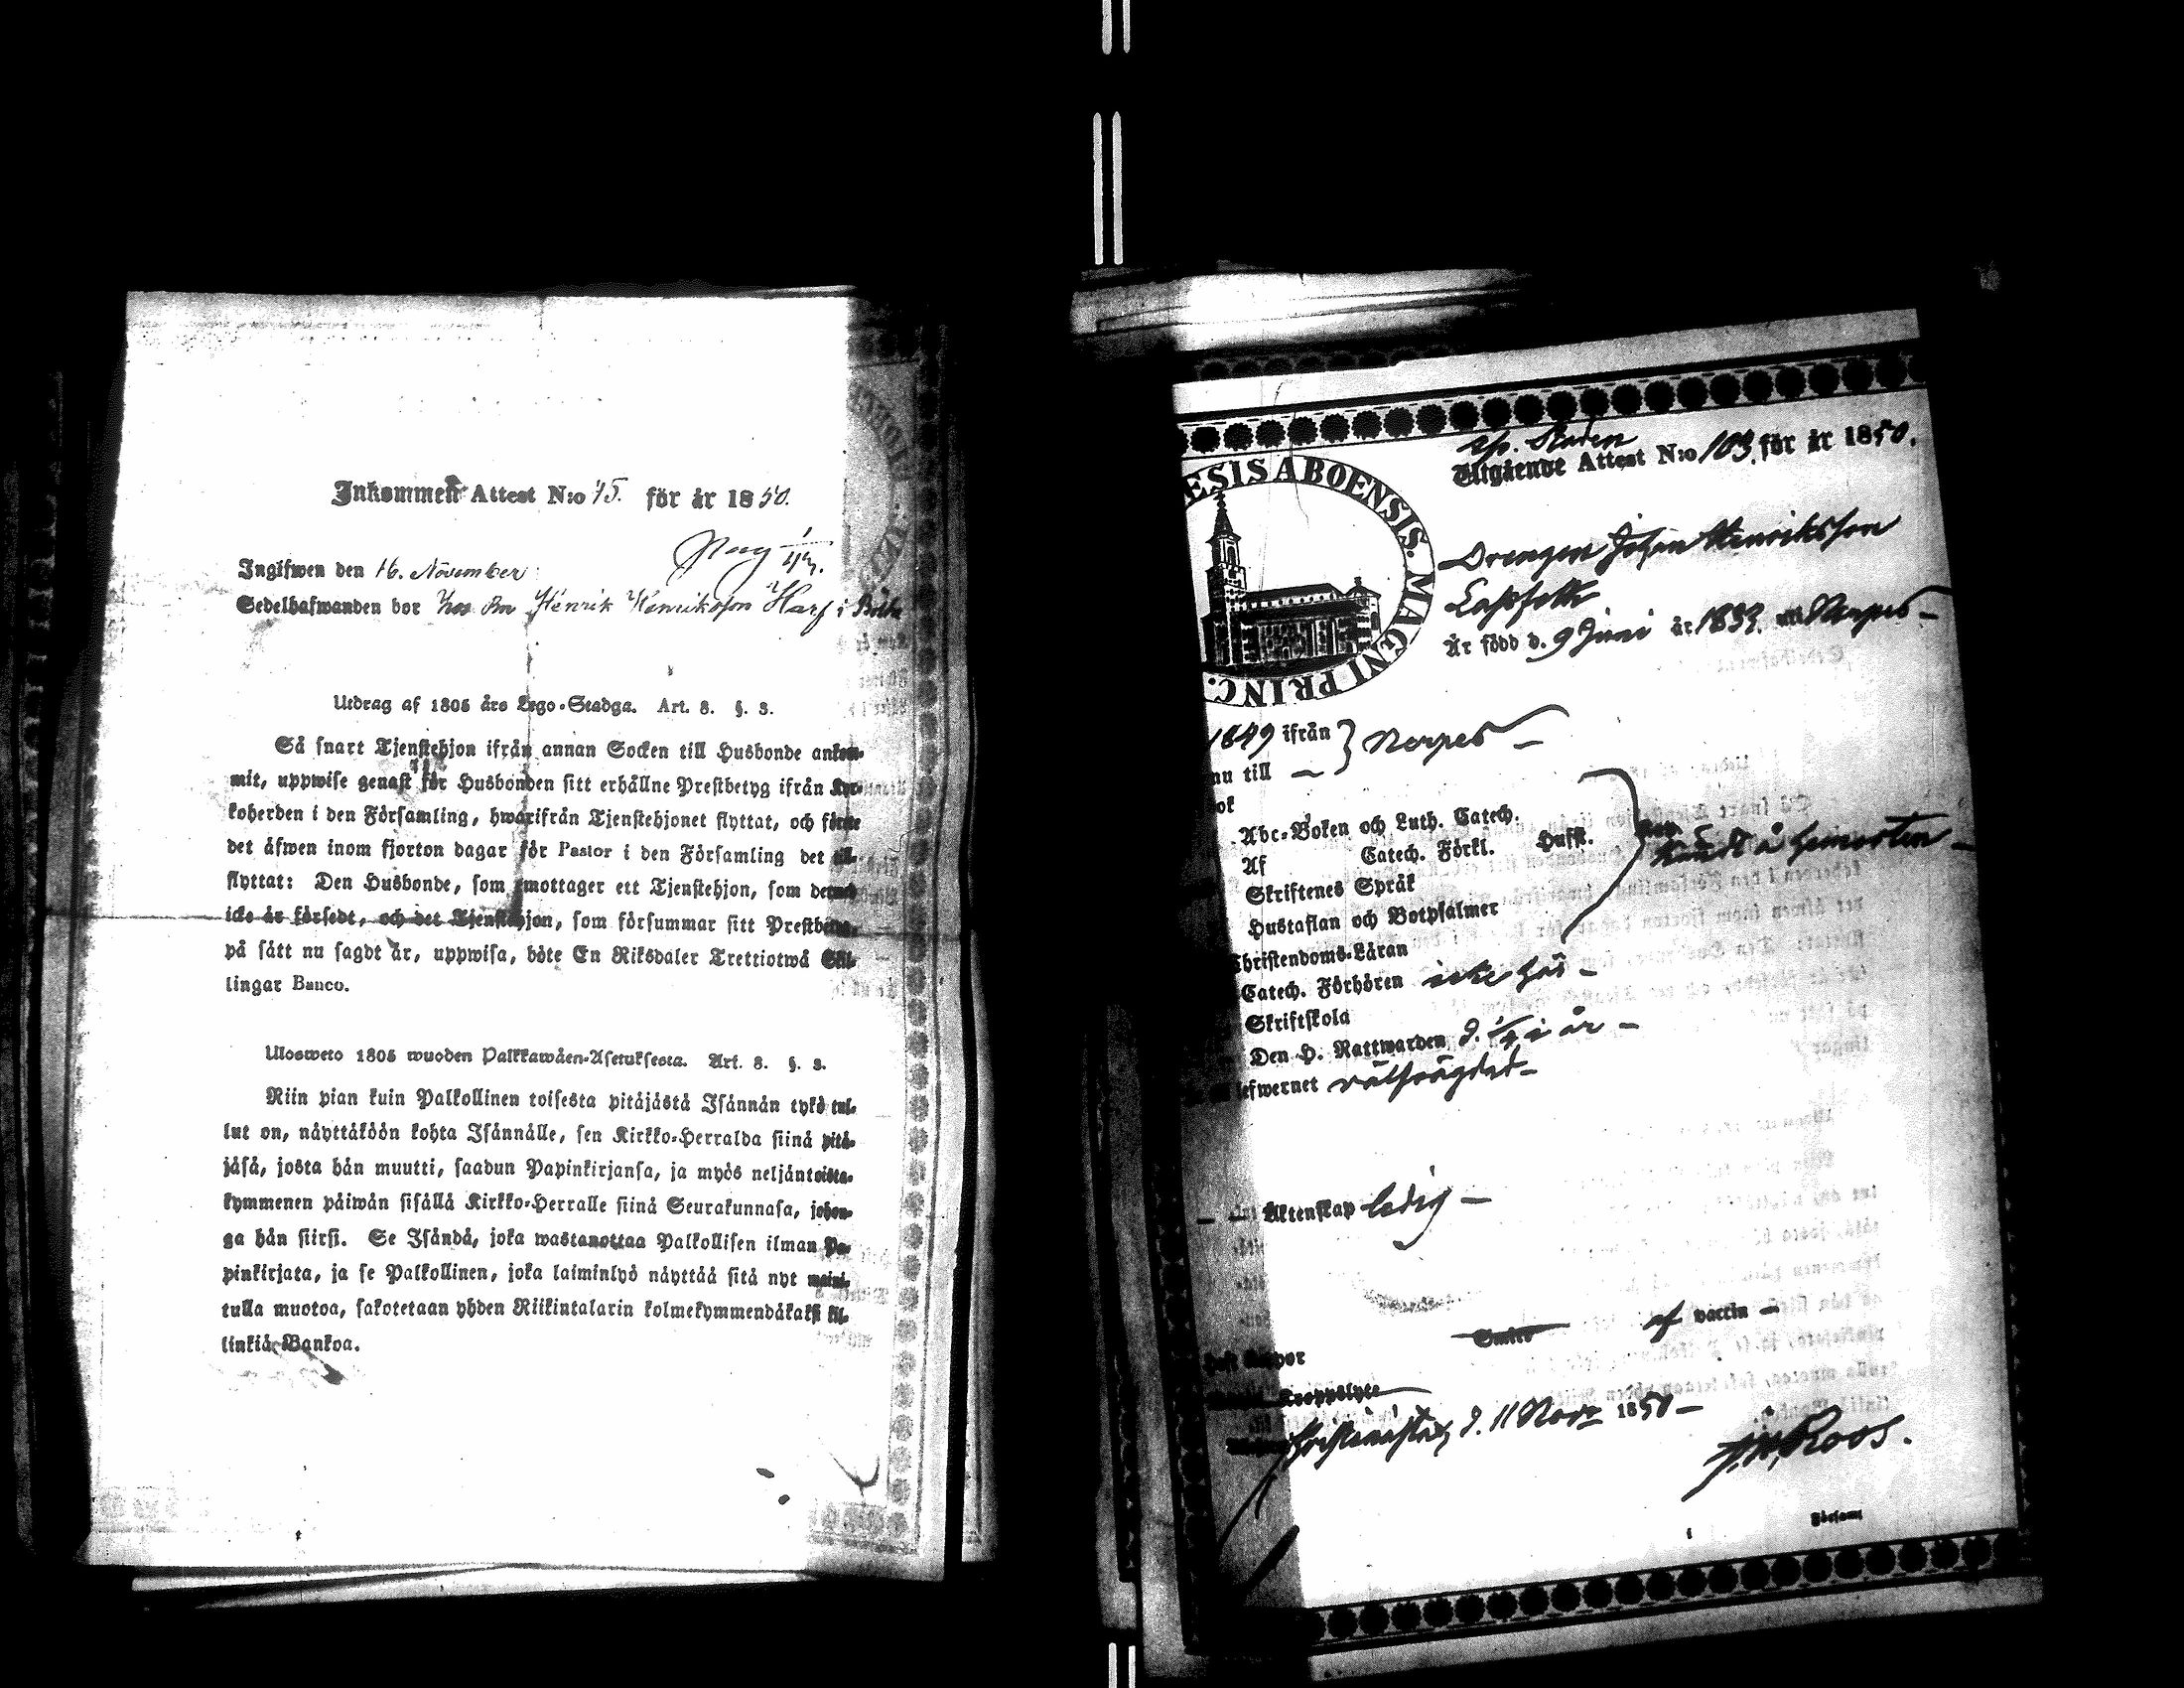 Inkommen Attest N:o 45. för år 1850.
Ingifwen den 16. November
Sedelhafwanden bor hos Bn Henrik Henriksson Harf i
Utdrag af 1805 års Lego-Stadga. Art. 8. §. 3.
Så snart Tjenstehjon ifrån annan Socken till Husbonde ankom-
mit, uppwise genast för Husbonden sitt erhållne Prestbetyg ifrån Kyr-
koherden i den Församling, hwarifrån Tjenstehjonet flyttat, och förete
det äfwen inom fjorton dagar för Pastor i den Församling det till-
flyttat: Den Husbonde, som emottager ett Tjenstehjon, som dermed
icke är försedt, och det Tjenstehjon, som försummar sitt Prestbetyg,
på sätt nu sagdt är, uppwisa, böte En Riksdaler Trettiotwå Skil-
lingar Banco.
Ulosweto 1805 wuoden Palkkawäen-Asetuksesta. Art. 8. §. 3.
Niin pian kuin Palkollinen toisesta pitäjästä Isännän tykö tul-
lut on, näyttäköön kohta Isännälle, sen Kirkko-Herralda siinä pitä-
jäsä, josta hän muutti, saadun Papinkirjansa, ja myös neljäntoista-
kymmenen päiwän sisällä Kirkko-Herralle siinä Seurakunnasa, johon-
ga hän siirsi. Se Isändä, joka wastanottaa Palkollisen ilman Pa-
pinkirjata, ja se Palkollinen, joka laiminlyö näyttää sitä nyt maini-
tulla muotoa, sakotetaan yhden Riikintalarin kolmekymmendäkaksi kil-
linkiä Bankoa.
ESIS ABOENSIS. MAGNI PRINC.
Utgående Attest N:o 103. för år 1850.
Drengen Johan Henriksson
Lassfolk
Är född d. 9 Juni år 1833. uti Nerpes –
1849 ifrån } Nerpes –
nu till –
ok
Abc-Boken och Luth. Catech.
Af Catech. Förkl. Hufst.
Skriftenes Språk
Hustaflan och Botpsalmer
Christendoms-Läran
Catech. Förhören icke här –
Skriftskola
Den H. Nattwarden d. i år –
lefwernet välfrägdad –
Äktenskap ledig –
af vaccin –
Kroppslyte
Christinestad, d. 11 Nov. 1850 –
J. W. Roos.